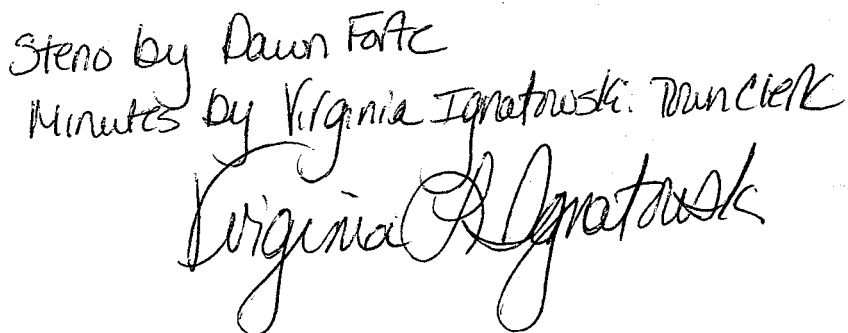 Steno by Dawn Forte
Minutes by Virginia Ignatowski. Town Clerk
Virginia L Ignatowski